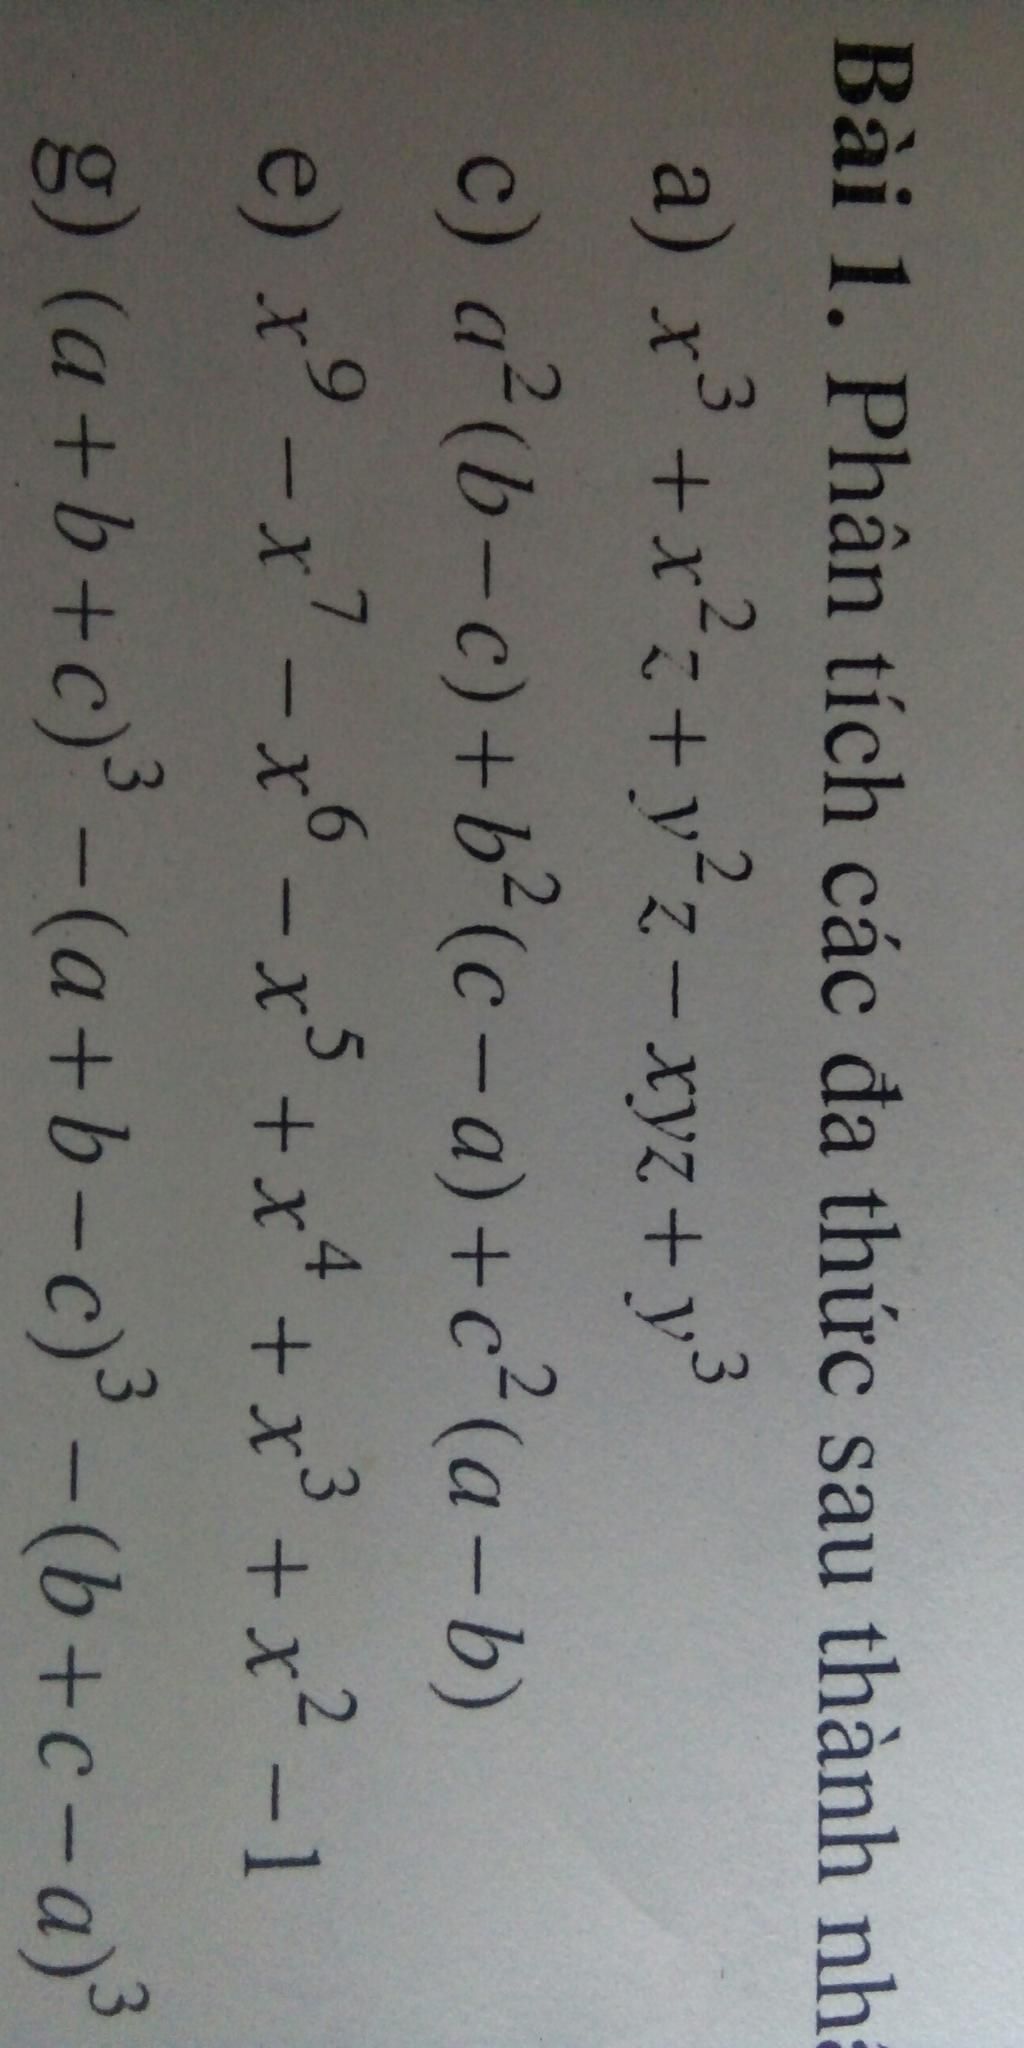 Bài 1. Phân tích các đa thức sau thành
a) x³ + x²z + y²z − xyz + y³
c) a²(b − c) + b²(c − a) + c²(a − b)
e) x⁹ − x⁷ − x⁶ − x⁵ + x⁴ + x³ + x² − 1
g) (a + b + c)³ − (a + b − c)³ − (b + c − a)³